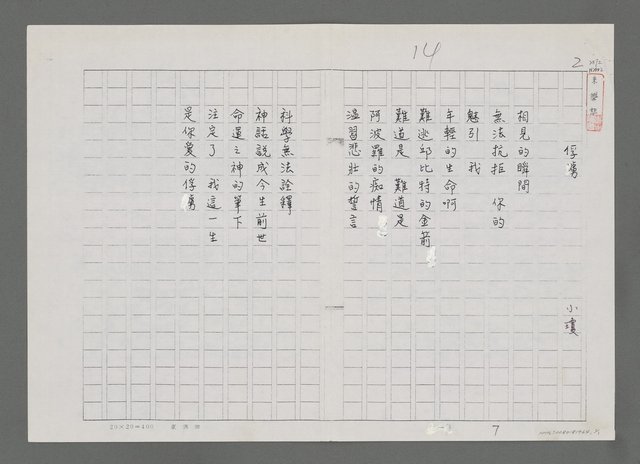 14
2
俘虜
小瓊
相見的瞬間
無法抗拒 你的
魅引 我
年輕的生命啊
難逃邱比特的金箭
難道是 難道是
阿波羅的痴情
溫習悲壯的誓言
科學無法詮釋
神話說成今生前世
命運之神的筆下
注定了 我這一生
是你愛的俘虜
20×20=400
7